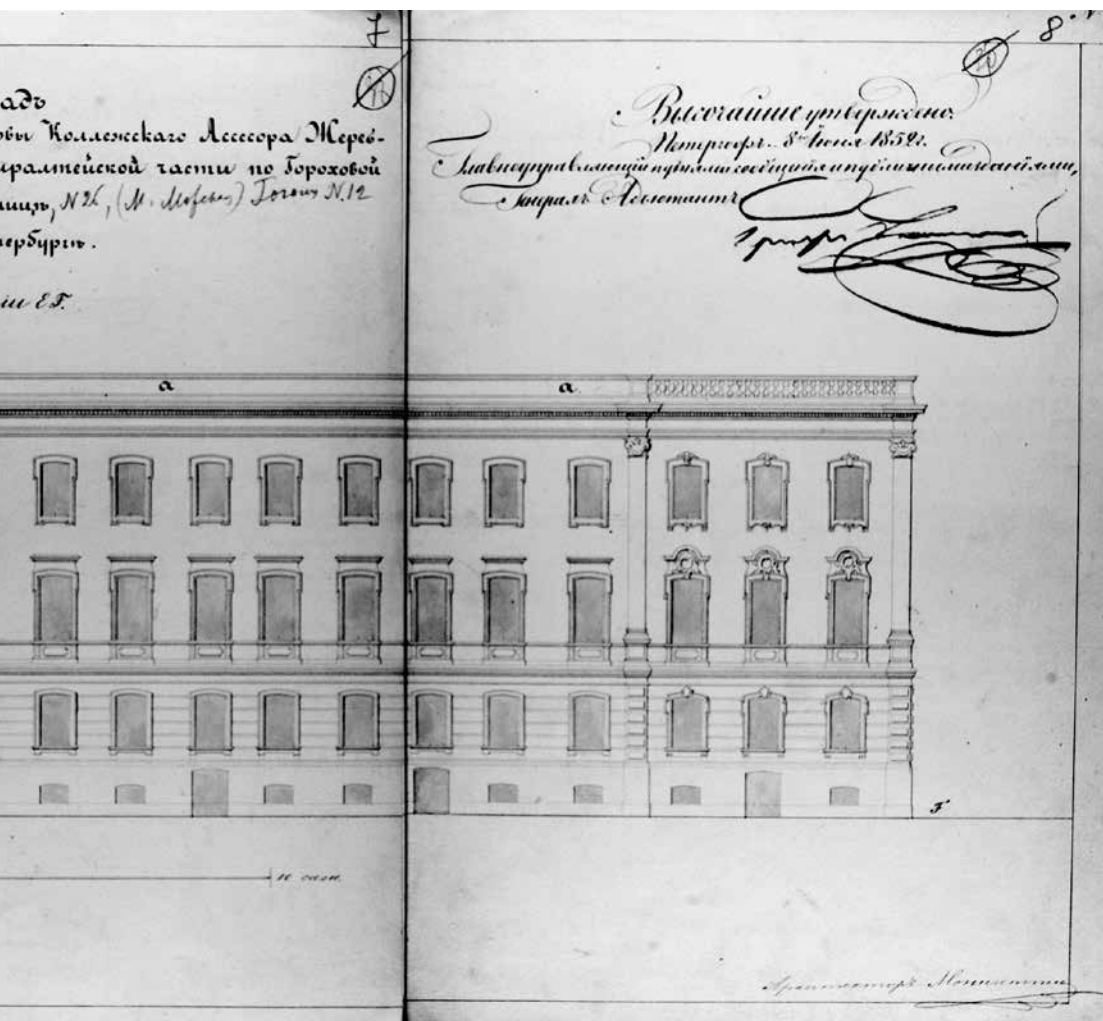 7
адъ
овы Коллежскаго Ассесора Жереб-
иралтейской части по Гороховой
лицъ, N 26, (М. Морская) Гоголя N.12
тербургѣ.
іи EF.
8
Высочайше утверждено.
Петергофъ. 8го Іюня 1852г.
Главноуправляющій путями сообщенія и публичными зданіями,
Генералъ Адъютантъ
Графъ
a
a.
F
10 саж.
Архитекторъ